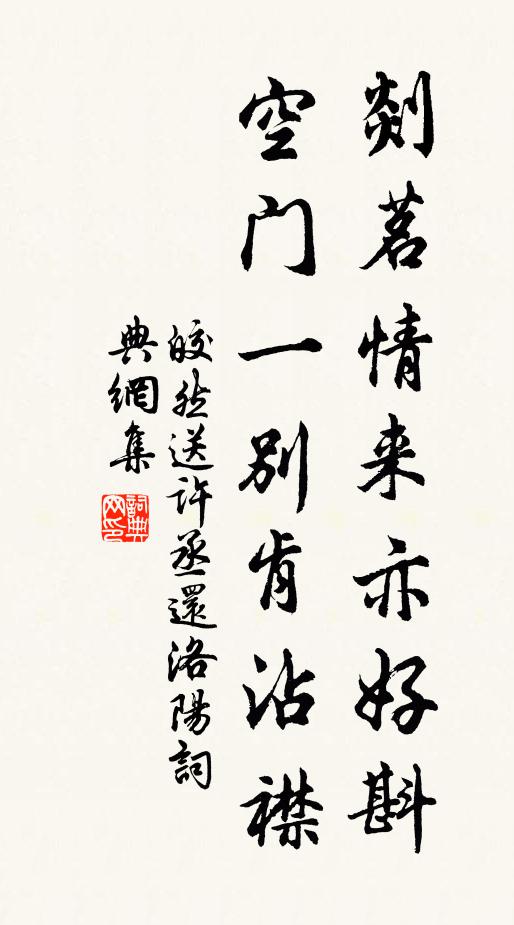 剡茗情来亦好斟
空门一别肯沾襟
皎然送许丞還洛陽詞
典網集
詞典网印